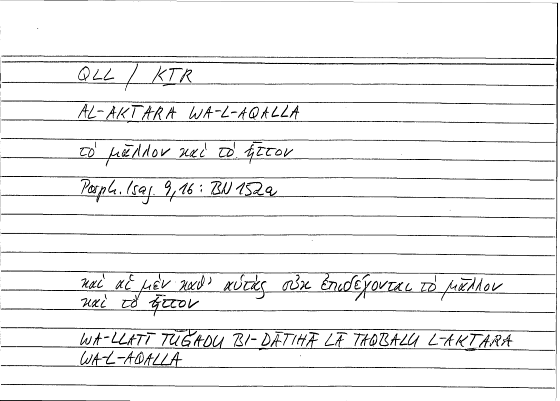 QLL / KṮR
AL-AKṮARA WA-L-AQALLA
τὸ μᾶλλον καὶ τὸ ἧττον
Porph. Isag. 9,16 : BN 152a
καὶ αἱ μὲν καθ' αὑτὰς οὐκ ἐπιδέχονται τὸ μᾶλλον
καὶ τὸ ἧττον
WA-LLATĪ TŪǦADU BI-ḎĀTIHĀ LĀ TAQBALU L-AKṮARA
WA-L-AQALLA